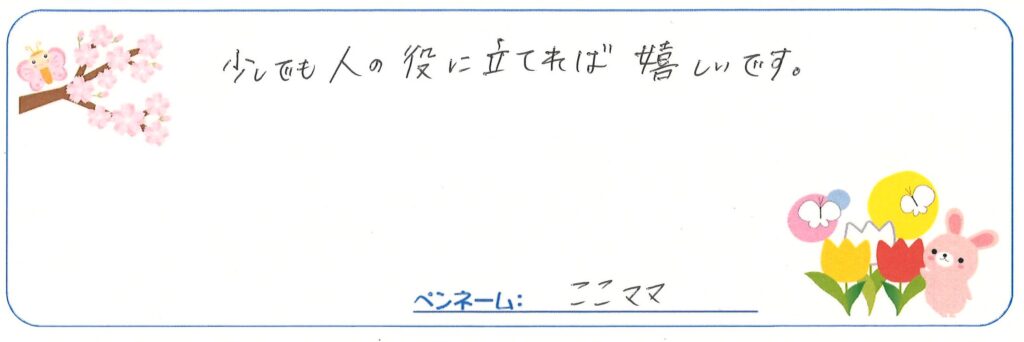 少しでも人の役に立てれば嬉しいです。
ペンネーム: ここママ